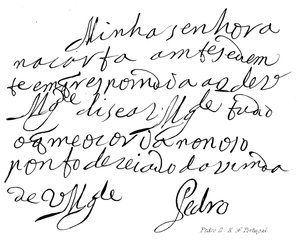 Minha senhora
na carta antesedem
te em q̃ respomdia as de v
Mg.de dise a v Mg.de tudo
o q̃ me ocorria no noso
ponto dezeiado da vimda
de v Mg.de Pedro
Pedro II. K. of Portugal.